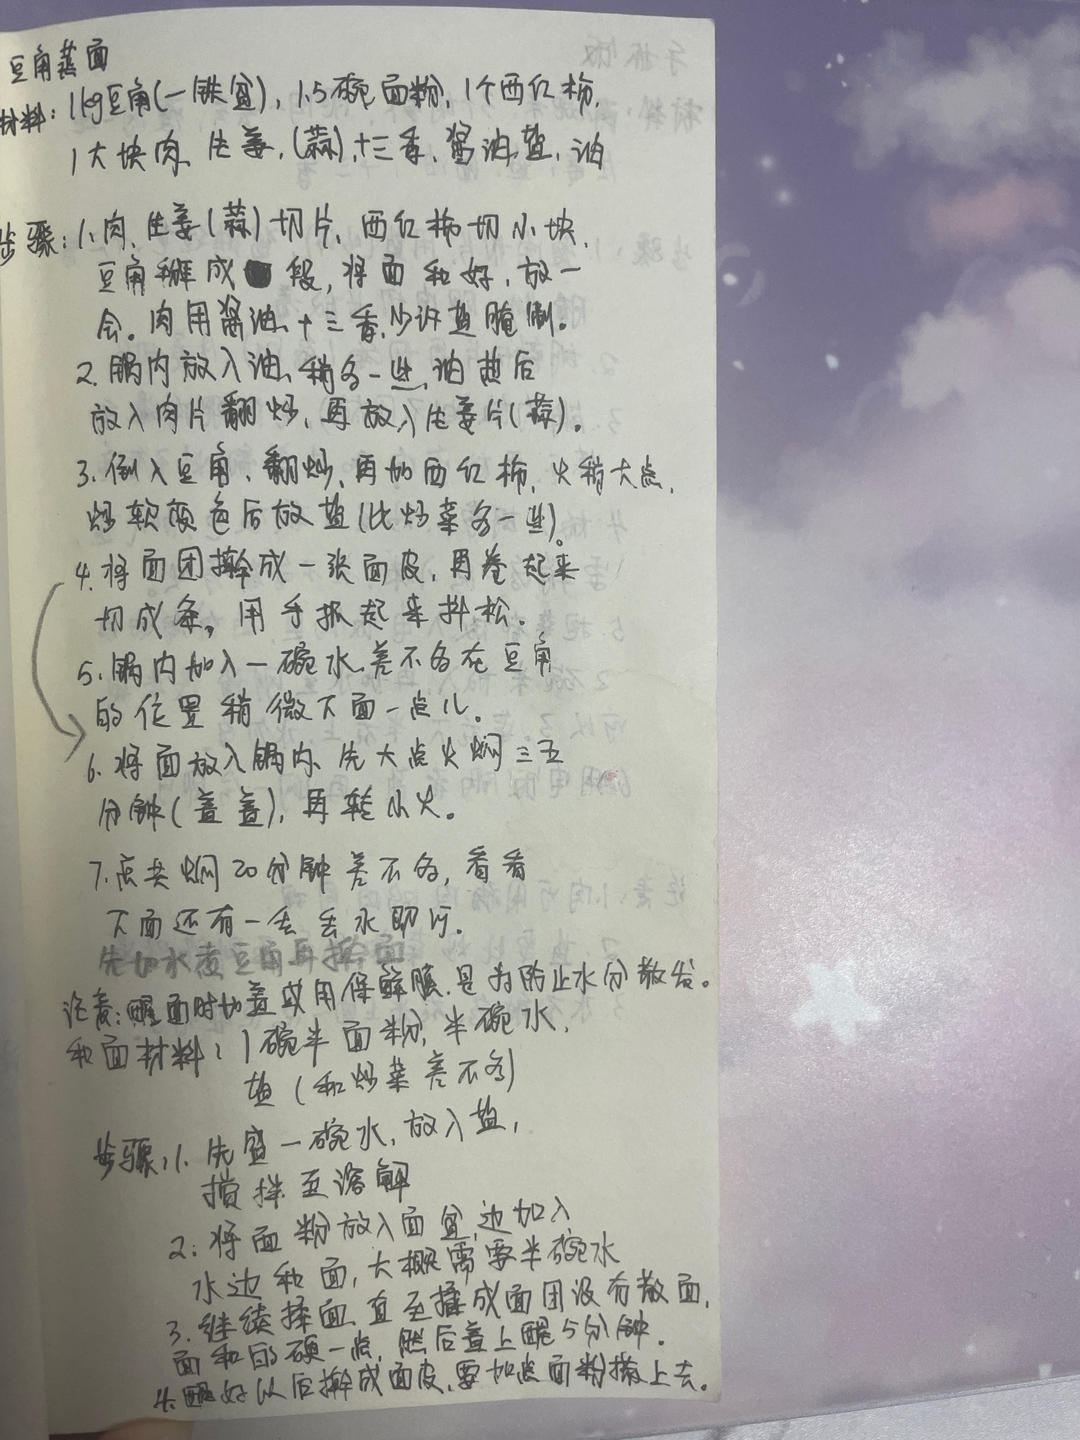 豆角蒸面
材料:1kg豆角(一铁盆),1.5碗面粉,1个西红柿,
1大块肉、生姜,(蒜),十三香、酱油,盐、油
步骤:1.肉、生姜(蒜)切片、西红柿切小块,
豆角掰成段,将面和好,放一
会。肉用酱油、十三香,少许盐腌制。
2.锅内放入油、稍多一些,油热后
放入肉片翻炒,再放入生姜片(蒜)。
3.倒入豆角、翻炒,再加西红柿,火稍大点,
炒软颜色后放盐(比炒菜多一些)。
4.将面团擀成一张面皮,再卷起来
切成条。用手抓起来抖松。
5.锅内加入一碗水.差不多在豆角
的位置稍微下面一点儿。
6.将面放入锅内、先大点火焖三五
分钟(盖盖),再转小火。
7.总共焖20分钟差不多,看看
下面还有一丢丢水即可.
先加水煮豆角再擀面
注意:醒面时加盖或用保鲜膜.是为防止水分散发。
和面材料:1碗半面粉,半碗水,
盐(和炒菜差不多)
步骤:1.先盛一碗水,放入盐,
搅拌至溶解
2:将面粉放入面盆,边加入
水边和面,大概需要半碗水
3.继续揉面,直至揉成面团没有散面,
面和的硬一点,然后盖上醒5分钟.
4.醒好以后擀成面皮,要加点面粉撒上去。